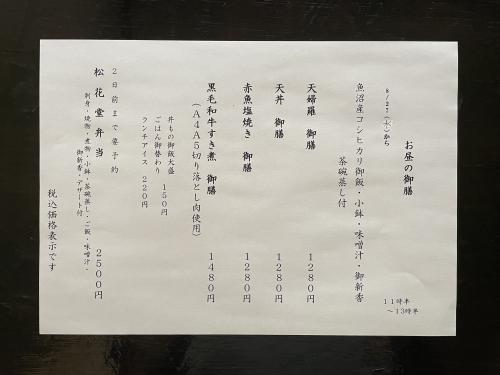 お昼の御膳
11時半
～13時半
8/27(水)から
魚沼産コシヒカリ御飯・小鉢・味噌汁・御新香
茶碗蒸し付
天婦羅 御膳 1280円
天丼 御膳 1280円
赤魚塩焼き 御膳 1280円
黒毛和牛すき煮 御膳 1480円
(A4A5切り落とし肉使用)
丼もの御飯大盛
ごはん御替わり 150円
ランチアイス 220円
2日前まで要予約
松花堂弁当 2500円
刺身・焼物・煮物・小鉢・茶碗蒸し・ご飯・味噌汁・
御新香・デザート付
税込価格表示です